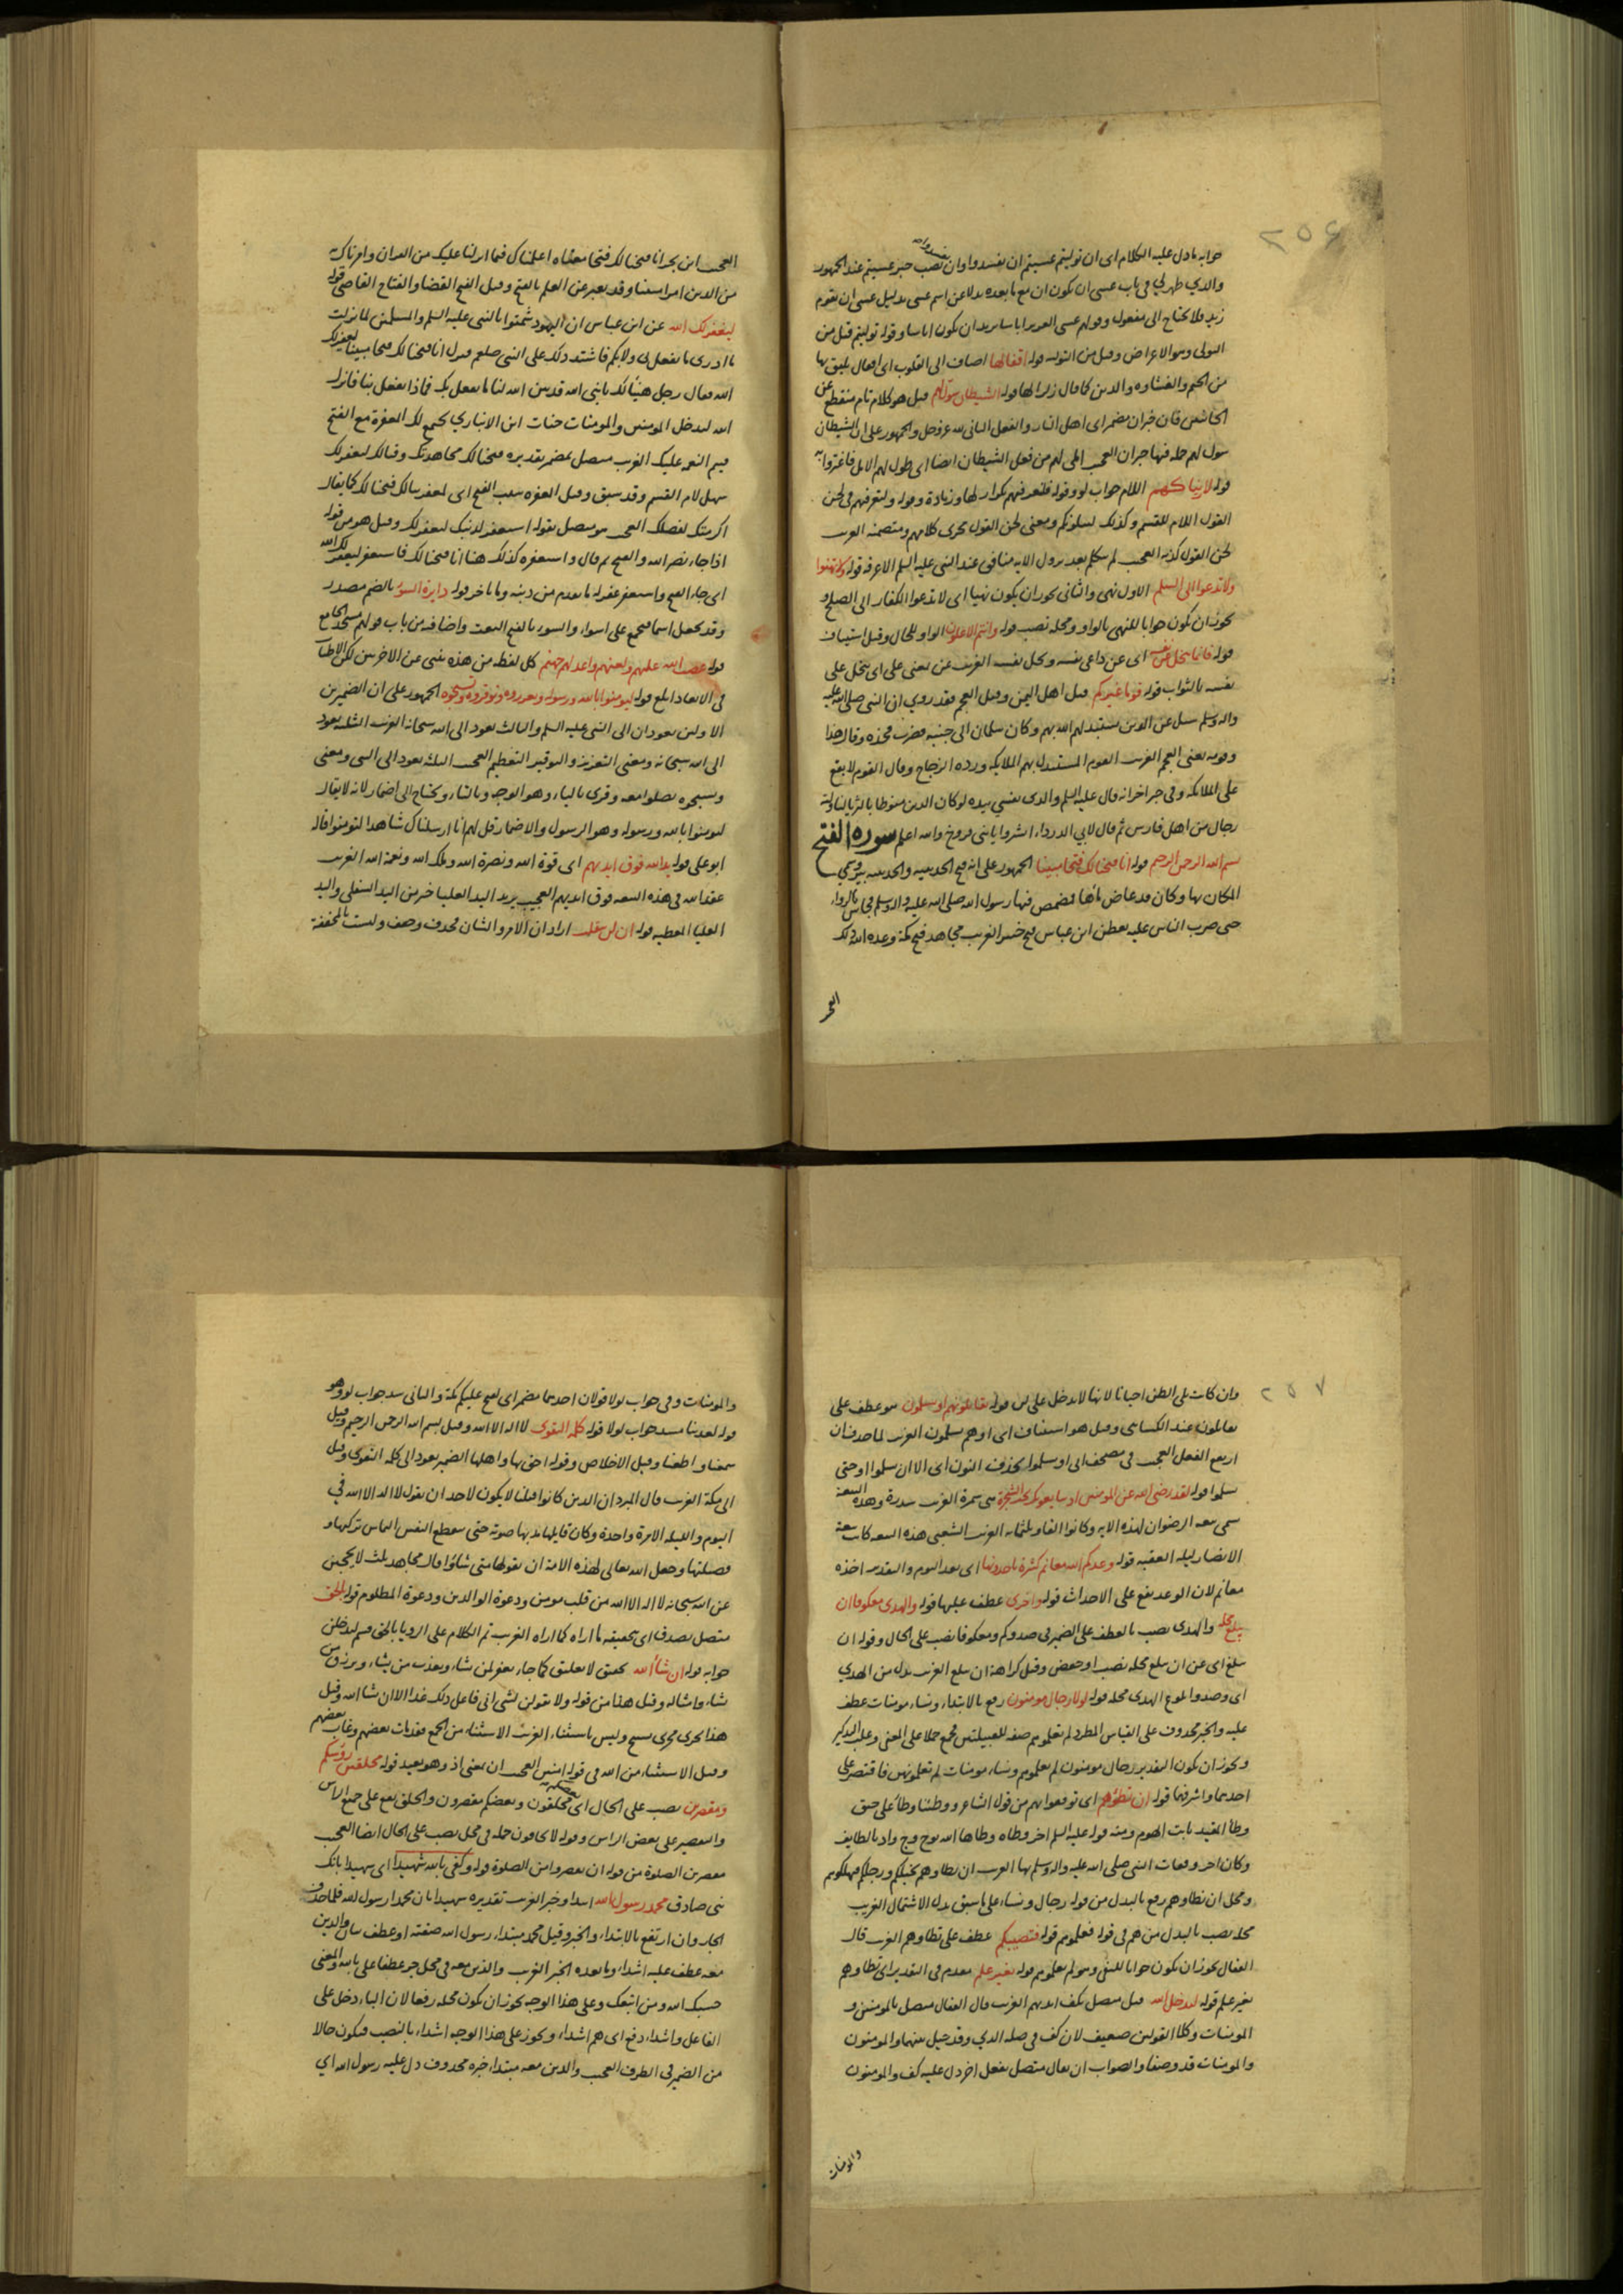 ٢٥٦
جوابه ما دل عليه الكلام اى ان توليتم عسيتم ان تفسدوا وان نصب خبر عسيتم عند الجمهور
والذي ظهر لي فى باب عسى ان يكون ان مع ما بعده بدلا عن اسم عسى بدليل عسى ان يقوم
زيد فلا يحتاج الى مفعول وقولهم عسى الغوير ابؤسا يريد ان يكون ابؤسا وقوله توليتم قيل من
التولى وهو الاعراض وقيل من التولية قوله اقفالها اضاف الى القلوب اى اقفال يليق بها
من الختم والغشاوة والرين كما قال زلزالها قوله الشيطان سول لهم قيل هو كلام تام منقطع عن
سول لهم حله فيها خبر ان العجيب املى لهم من فعل الشيطان ايضا اى طول لهم الامل فاغتروا به
قوله لاريناكهم اللام جواب لو وقوله فلعرفتهم تكرار لها وزيادة وقوله ولتعرفنهم فى لحن
القول اللام للقسم وكذلك لنبلونكم ومعنى لحن القول فحوى كلامهم ومتضمنه الغريب
لحن القول كذبه العجيب لم يتكلم بعد نزول الاية منافق عند النبى عليه السلم الا عرفه قوله ولا تهنوا
وتدعوا الى السلم الاول نهى والثانى يجوز ان يكون نهيا اى لا تدعوا الكفار الى الصلح و
يجوز ان يكون جوابا للنهى بالواو ومحله نصب قوله وانتم الاعلون الواو للحال وقيل استيناف
قوله فانما يبخل عن نفسه اى عن داعى نفسه وبخل نفسه الغريب عن بمعنى على اى يبخل على
نفسه بالثواب قوله قوما غيركم قيل اهل اليمن وقيل العجم فقد روي ان النبى صلى الله عليه
واله وسلم سئل عن الذين يستبدلهم الله بهم وكان سلمان الى جنبه فضرب فخذه وقال هذا
وقومه يعنى العجم الغريب القوم المستبدل بهم الملايكة ورده الزجاج وقال القوم لا يقع
على الملائكة وفى خبر اخر انه قال عليه السلم والذى نفسي بيده لو كان الدين منوطا بالثريا لتناوله
رجال من اهل فارس ثم قال لابي الدرداء ابشروا يا بنى فروخ والله اعلم سورة الفتح
بسم الله الرحمن الرحيم قوله انا فتحنا لك فتحا مبينا الجمهور على انه فتح الحديبيه والحديبيه بئر سمي
المكان بها وكان قد غاض ماؤها فتمضمض فيها رسول الله صلى الله عليه واله وسلم فجاش بالرواء
حتى ضرب الناس عليه بعطن ابن عباس فتح خيبر الغريب مجاهد فتح مكة وعده الله ذلك
العجيب ابن بحر انا فتحنا لك فتحا معناه اعلمناك فيما انزلنا عليك من القران وامرناك به
من الدين امرا مبينا وقد يعبر عن العلم بالفتح وقيل الفتح القضا والفتاح القاضى قوله
ليغفر لك الله عن ابن عباس ان اليهود شمتوا بالنبى عليه السلم والمسلمين لما نزلت
ما ادرى ما يفعل بى ولا بكم فاشتد ذلك على النبى صلعم فنزل انا فتحنا لك فتحا مبينا ليغفر لك
الله فقال رجل هنيئا لك يا نبى الله قد بين الله لنا ما يفعل بك فماذا يفعل بنا فانزل
الله ليدخل المومنين والمومنات جنات ابن الانباري يجمع لك المغفرة مع الفتح
فيتم النعمة عليك الغريب متصل بمضمر تقديره فتحنا لك مجاهدتك وقتالك ليغفر لك
سهل لام القسم وقد سبق وقيل المغفرة سبب الفتح اى لمغفرتنا لك فتحنا لك كما يقال
اكرمتك لفضلك العجيب هو متصل بقوله استغفر لذنبك ليغفر لك وقيل هو من قوله
اذا جاء نصر الله والفتح ثم قال واستغفره كذلك هنا انا فتحنا لك فاستغفر ليغفر لك الله
اى جاء الفتح واستغفر غفر له ما تقدم من ذنبه وما تاخر قوله دايرة السوء بالضم مصدر
وقد يجعل اسما فيجمع على اسواء والسوء بالفتح النعت واضافته من باب قولهم مسجد الجامع
قوله غضب الله عليهم ولعنهم واعد لهم جهنم كل لفظة من هذه تنبى عن الاخرين لكن الاطناب
فى الابعاد ابلغ قوله ليومنوا بالله ورسوله ويعزروه ويوقروه ويسبحوه الجمهور على ان الضميرين
الاولين يعودان الى النبى عليه السلم والثالث يعود الى الله سبحانه الغريب الثلثه يعود
الى الله سبحانه ومعنى التعزيز والتوقير التعظيم العجيب الثلثه يعود الى النبى ومعنى
ويسبحوه يصلوا معه وقرى بالياء وهو الوجه وبالتاء ويحتاج الى اضمار لانه لا يقال
لتومنوا بالله ورسوله وهو الرسول والاضمار قل لهم انا ارسلناك شاهدا لتومنوا قاله
ابو على قوله يد الله فوق ايديهم اى قوة الله ونصرة الله وملك الله ونعمة الله الغريب
عقد الله فى هذه البيعه فوق ايديهم العجيب يريد اليد العليا خير من اليد السفلى واليد
العليا المعطيه قوله ان لن ينقلب اراد ان الامر والشان فحذف وخفف وليست بالمخففة
٢٥٧
وان كانت تلى الظن احيانا لانها لا تدخل على لن قوله تقاتلونهم او يسلمون هو عطف على
تقاتلون عند الكسائى وقيل هو استيناف اى او هم يسلمون الغريب لما حذف ان
ارتفع الفعل العجيب فى مصحف ابى او يسلموا بحذف النون اى الا ان يسلموا او حتى
يسلموا قوله لقد رضى الله عن المومنين اذ يبايعونك تحت الشجرة هى سمرة الغريب سدرة وهذه البيعة
سمى بيعه الرضوان لهذه الاية وكانوا الفا وثلثمايه الغريب الشعبى هذه البيعه كانت بيعة
الانصار ليله العقبه قوله وعدكم الله مغانم كثيرة تاخذونها اى بعد اليوم والتقدير اخذه
مغانم لان الوعد يقع على الاحداث قوله واخرى عطف عليها قوله والهدى معكوفا ان
يبلغ محله والهدى نصب بالعطف على الضمير فى صدوكم ومعكوفا نصب على الحال وقوله ان
يبلغ اى عن ان يبلغ محله نصب او خفض وقيل كراهة ان يبلغ الغريب بدل من الهدي
اى وصدوا بلوغ الهدى محله قوله لولا رجال مومنون رفع بالابتداء ونساء مومنات عطف
عليه والخبر محذوف على القياس المطرد لم تعلموهم صفة للقبيلتين فجمع حملا على المعنى وغلب التذكير
ويجوز ان يكون التقدير رجال مومنون لم تعلموهم ونساء مومنات لم تعلموهن فاقتصر على
احدهما واشرفهما قوله ان تطؤهم اى توقعوا بهم من قول الشاعر ووطئتنا وطأ على حنق
وطأ المقيد نابت الهرم ومنه قوله عليه السلم اخر وطاة وطاها الله بوج وج واد بالطايف
وكان اخر وقعات النبى صلى الله عليه واله وسلم بها الغريب ان تطاوهم بخيلكم ورجلكم فتهلكوهم
ومحل ان تطاوهم رفع بالبدل من قوله رجال ونساء على ما سبق بدل الاشتمال الغريب
محله نصب بالبدل من هم فى قوله تعلموهم قوله فتصيبكم عطف على تطاوهم الغريب قال
القفال يجوز ان يكون جوابا للنفى وهو لم تعلموهم قوله بغير علم مقدم فى التقدير اى تطاوهم
بغير علم قوله ليدخل الله قيل متصل بكف ايديهم الغريب قال القفال متصل بالمومنين و
المومنات وكلا القولين ضعيف لان كف فى صله الذي وقد حيل بينهما والمومنون
والمومنات قد وصفا والصواب ان يقال متصل بفعل اخر دل عليه كف والمومنون
والمومنات
والمومنات وفى جواب لولا قولان احدهما مضمر اى لفتح عليكم مكة والثانى سد جواب لو وهو
قوله لعذبنا مسد جواب لولا قوله كلمه التقوى لا اله الا الله وقيل بسم الله الرحمن الرحيم وقيل
سمعنا واطعنا وقيل الاخلاص وقوله احق بها واهلها الضمير يعود الى كلمه التقوى وقيل
الى مكة الغريب قال المبرد ان الذين كانوا قبلنا لا يكون لاحد ان يقول لا اله الا الله في
اليوم والليله الا مرة واحدة وكان قايلها يمد بها صوته حتى ينقطع النفس التماس بركتها و
فضيلتها وجعل الله تعالى لهذه الامة ان يقولها متى شاؤا قال مجاهد ثلث لا يحجبن
عن الله سبحانه لا اله الا الله من قلب مومن ودعوة الوالدين ودعوة المظلوم قوله بالحق
متصل بصدق اى بتحقيقه ما اراه كما اراه الغريب تم الكلام على الرويا بالحق قسم لتدخلن
جوابه قوله ان شاء الله تحقيق لا تعليق كما جاء يغفر لمن يشاء ويعذب من يشاء ويرزق من
يشاء وامثاله وقيل هذا من قوله ولا تقولن لشى انى فاعل ذلك غدا الا ان يشا الله وقيل
هذا يجرى مجرى تسبيح وليس باستثناء الغريب الاستثناء من الجمع فقد مات بعضهم وغاب بعضهم
وقيل الاستثناء من الله فى قوله امنين العجيب ان بمعنى اذ وهو بعيد قوله محلقين رؤسكم
ومقصرين نصب على الحال اى بعضكم محلقون وبعضكم مقصرون والحلق يقع على جميع الراس
والتقصير على بعض الراس وقوله لا تخافون جملة فى محل نصب على الحال ايضا العجيب
مقصرين الصلوة من قوله ان تقصروا من الصلوة قوله وكفى بالله شهيدا اى شهيدا بانك
نبى صادق محمد رسول الله ابتدا وخبر الغريب تقديره شهيدا بان محمدا رسول الله فلما حذف
الجار وان ارتفع بالابتداء والخبر وقيل محمد مبتداء رسول الله صفته او عطف بيان والذين
معه عطف عليه اشداء وما بعده الخبر الغريب والذين معه فى محل جر عطفا على بالله والمعنى
حسبك الله ومن اتبعك وعلى هذا الوجه يجوز ان يكون محله رفعا لان الباء دخل على
الفاعل واشداء رفع اى هم اشداء ويجوز على هذا الوجه اشداء بالنصب فيكون حالا
من الضمير فى الظرف العجيب والذين معه مبتداء خبره محذوف دل عليه رسول الله اي